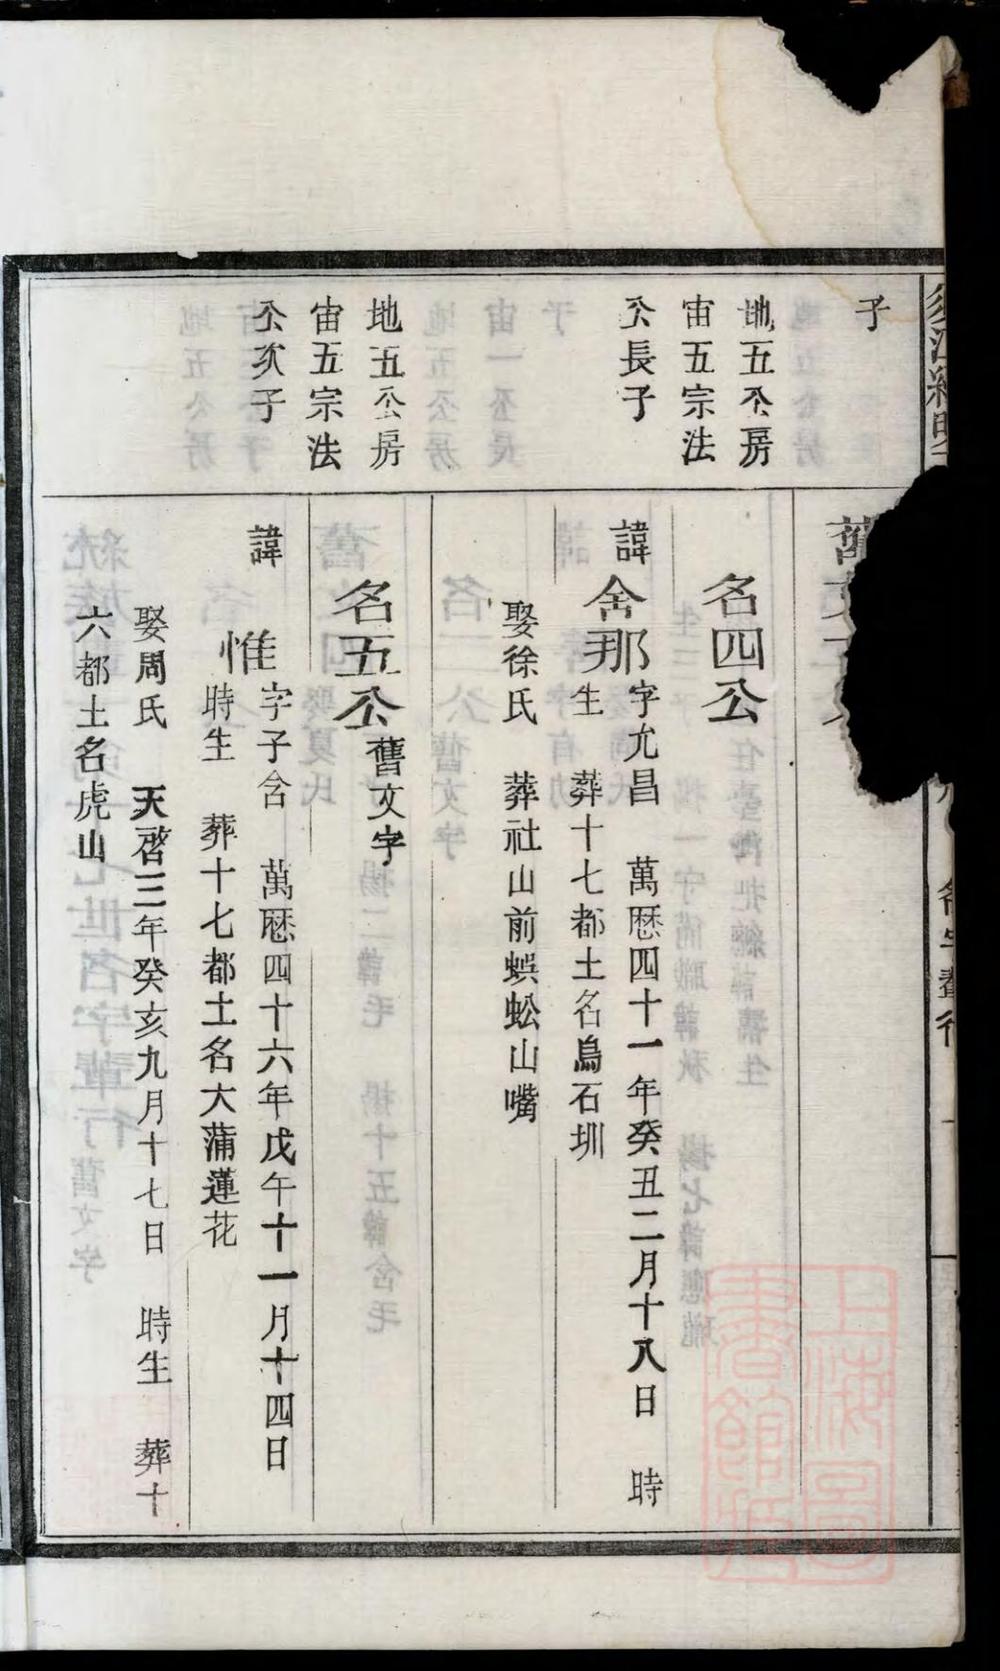 子
舊文字
地五公房
宙五宗法
公長子
名四公
諱
舍那
字允昌 萬厯四十一年癸丑二月十八日 時
生 葬十七都土名鳥石圳
娶徐氏 葬社山前蜈蚣山嘴
地五公房
宙五宗法
公次子
名五公舊文字
諱
惟
字子含 萬厯四十六年戊午十一月十四日
時生 葬十七都土名大蒲蓮花
娶周氏 天啓三年癸亥九月十七日 時生 葬十
六都土名虎山
上海圖
書館藏